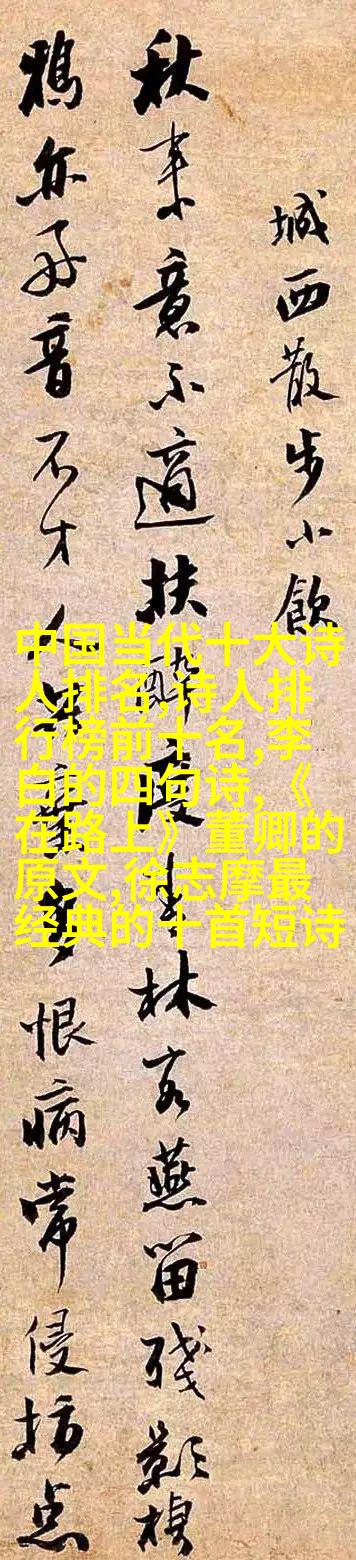 城西散步小飲
秋来意不適扶醉度半林客燕留殘影模
鴉亦好音不才人恨病常侵拈点
中国当代十大诗
人排名,诗人排
行榜前十名,李
白的四句诗,《
在路上》董卿的
原文,徐志摩最
经典的十首短诗